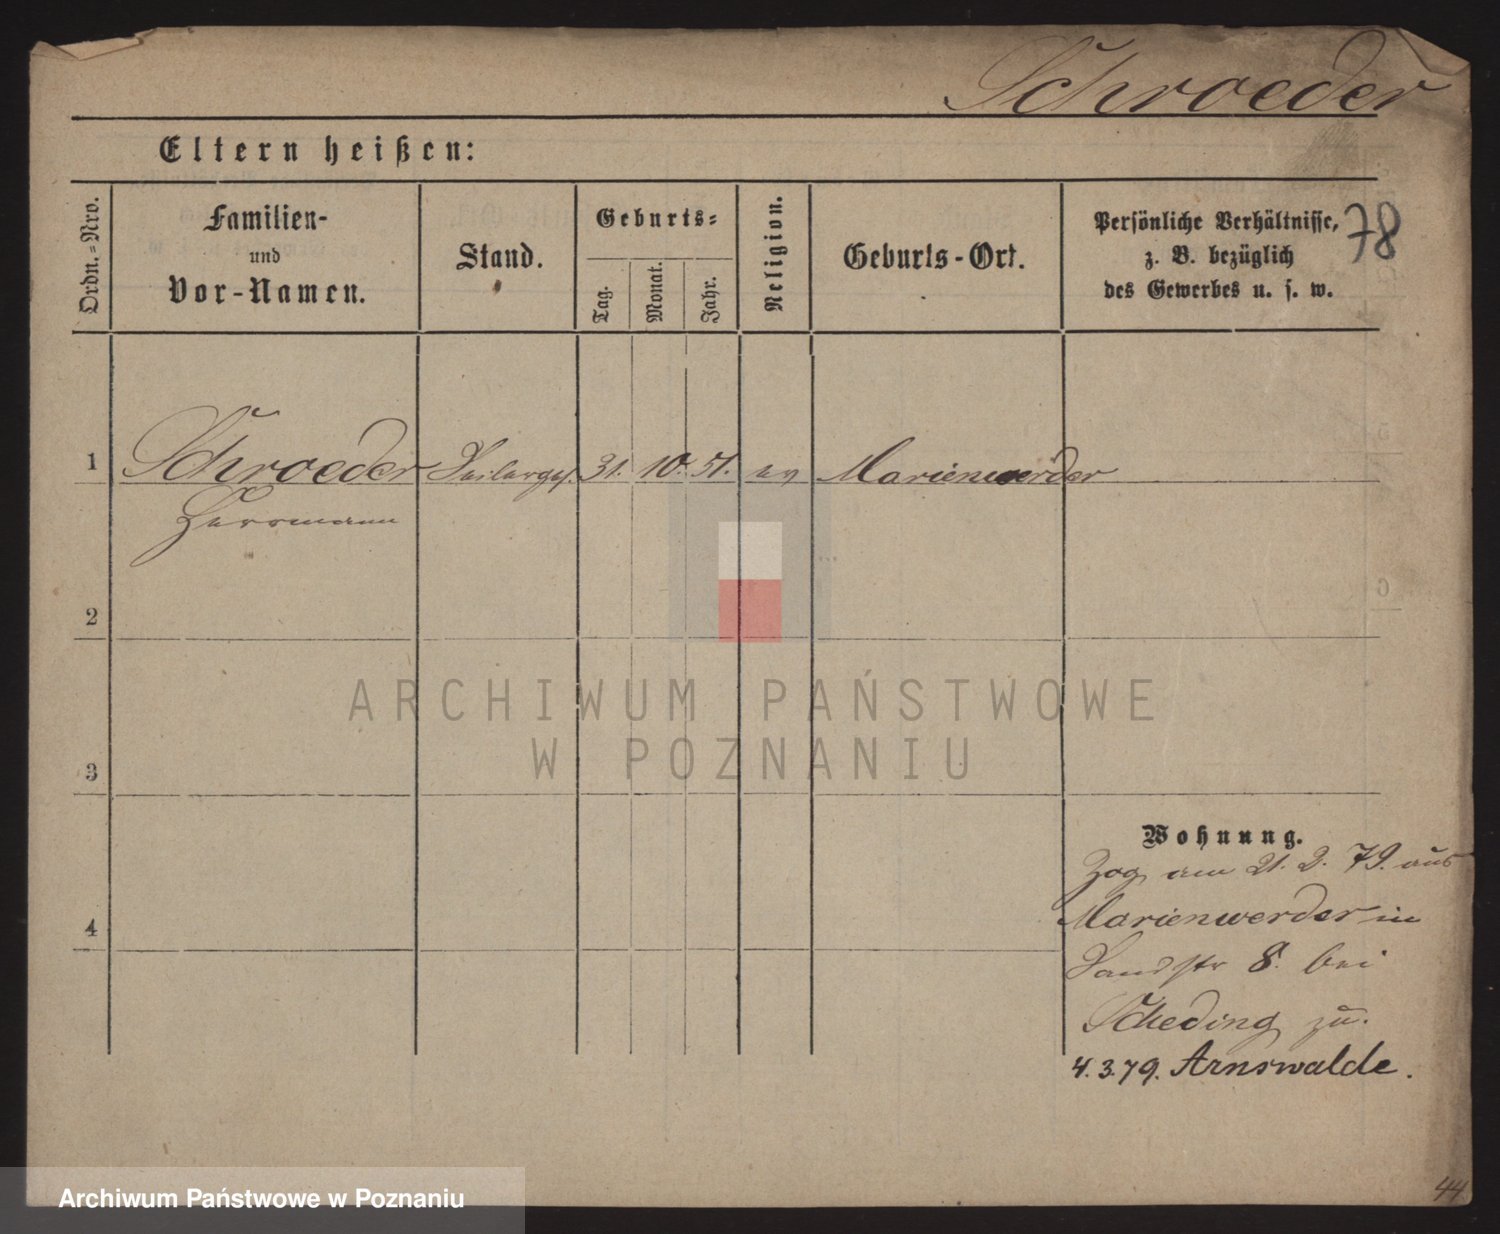 Schroeder
Eltern heißen:
Ordn.-Nro.
Familien-
und
Vor-Namen.
Stand.
Geburts-
Tag.
Monat.
Jahr.
Religion.
Geburts-Ort.
Persönliche Verhältnisse,
z. B. bezüglich
des Gewerbes u. s. w.
78
1 Schroeder Seilerges. 31. 10. 51. ev Marienwerder
Herrmann
2
3
4
Wohnung.
Zog am 21. 2. 79. aus
Marienwerder in
Sandstr 8. bei
Scheding zu.
4.3.79. Arnswalde.
44
ARCHIWUM PAŃSTWOWE
W POZNANIU
Archiwum Państwowe w Poznaniu